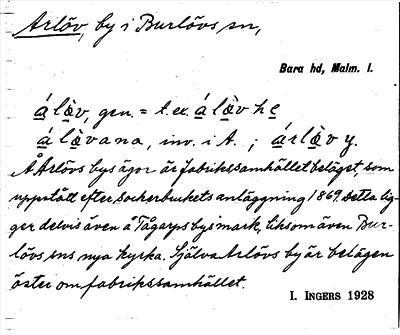 Arlöv, by i Burlövs sn,
Bara hd, Malm. l.
álòv, gen. = t.ex. álòv he
álòvana, inv. i A. ; árlòv y.
Å Arlövs bys ägor är fabrikssamhället beläget, som
uppstått efter sockerbrukets anläggning 1869. Detta lig-
ger delvis även å Tågarps bys mark, liksom även Bur-
lövs sns nya kyrka. Själva Arlövs by är belägen
öster om fabrikssamhället.
I. INGERS 1928